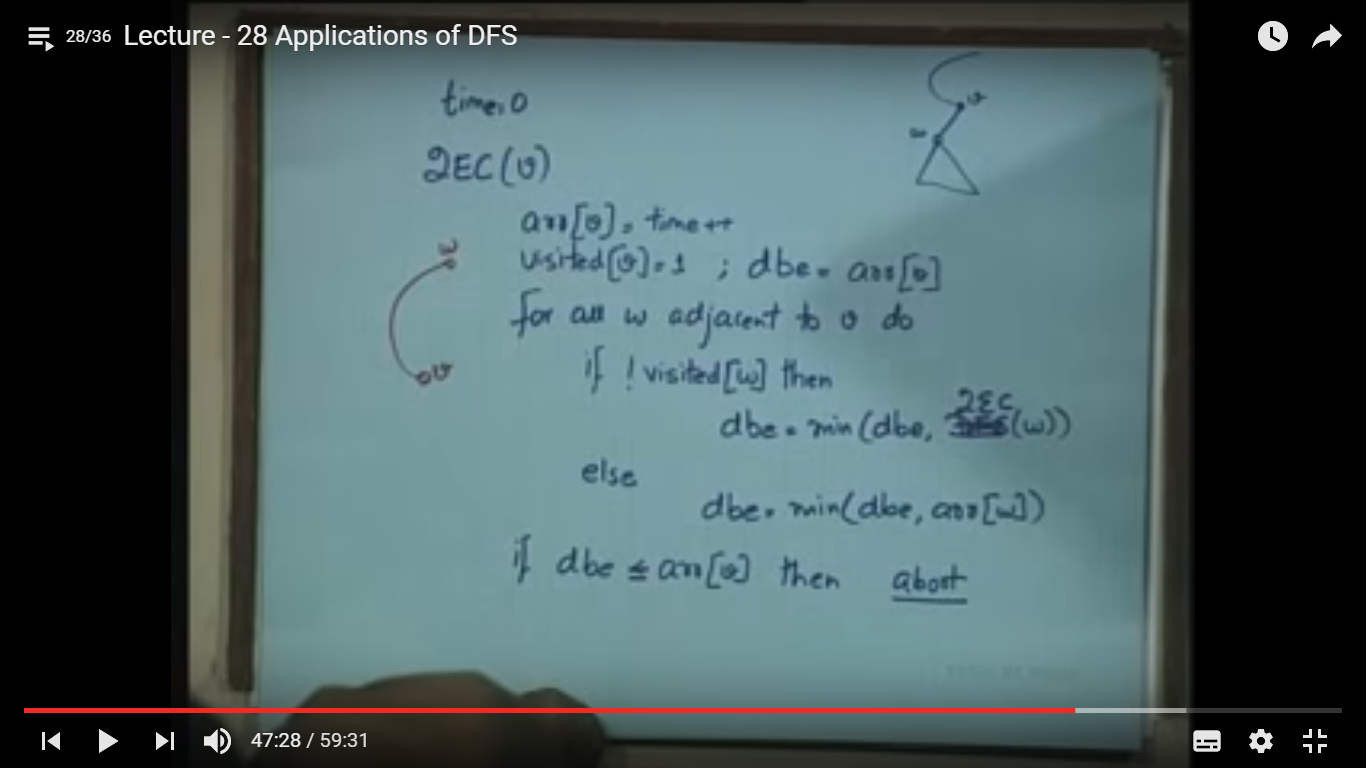 28/36 Lecture - 28 Applications of DFS
time=0
u
w
2EC(v)
arr[v]= time++
w
visited[v]=1 ; dbe= arr[v]
for all w adjacent to v do
v
if !visited[w] then
dbe = min(dbe, 2EC(w))
else
dbe= min(dbe, arr[w])
if dbe ≤ arr[v] then abort
47:28 / 59:31